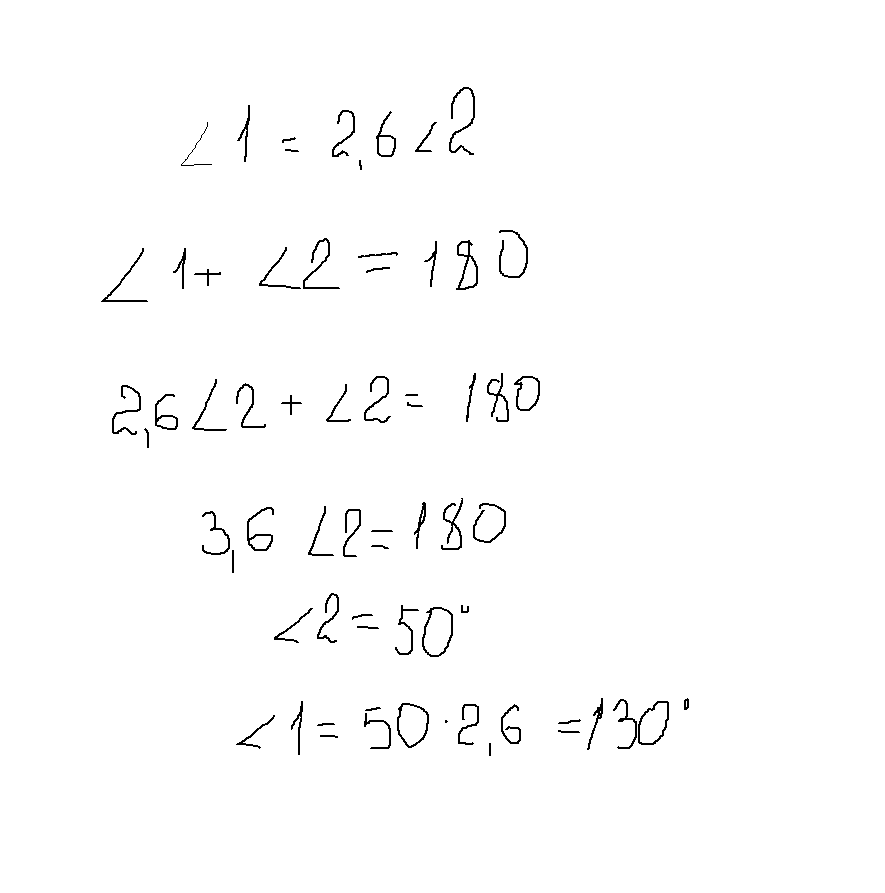 ∠1 = 2,6∠2
∠1+ ∠2 = 180
2,6∠2 + ∠2 = 180
3,6 ∠2 = 180
∠2 = 50°
∠1 = 50 · 2,6 = 130°